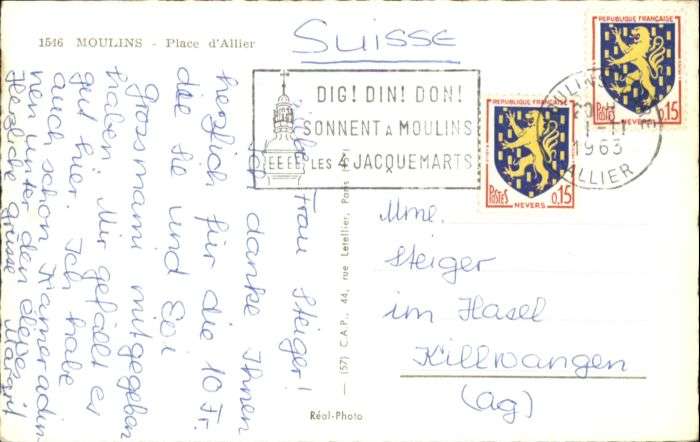 1546 MOULINS - Place d'Allier
SUISSE
DIG! DIN! DON!
SONNENT A MOULINS
LES 4 JACQUEMARTS
REPUBLIQUE FRANÇAISE
POSTES
0,15
NEVERS
REPUBLIQUE FRANÇAISE
POSTES
0,15
NEVERS
1963
ALLIER
Frau Steiger!
Ich danke Ihnen
herzlich für die 10 Fr.
die Sie und
Grossmami mitgegeben
haben. Mir gefällt es
gut hier. Ich habe
auch schon Kameradin-
nen unter den eleven
Herzliche Grüsse
Margrit
(57) C.A.P., 44, rue Letellier, Paris
Réal-Photo
Mme.
Steiger
im Hasel
Killwangen
(ag)